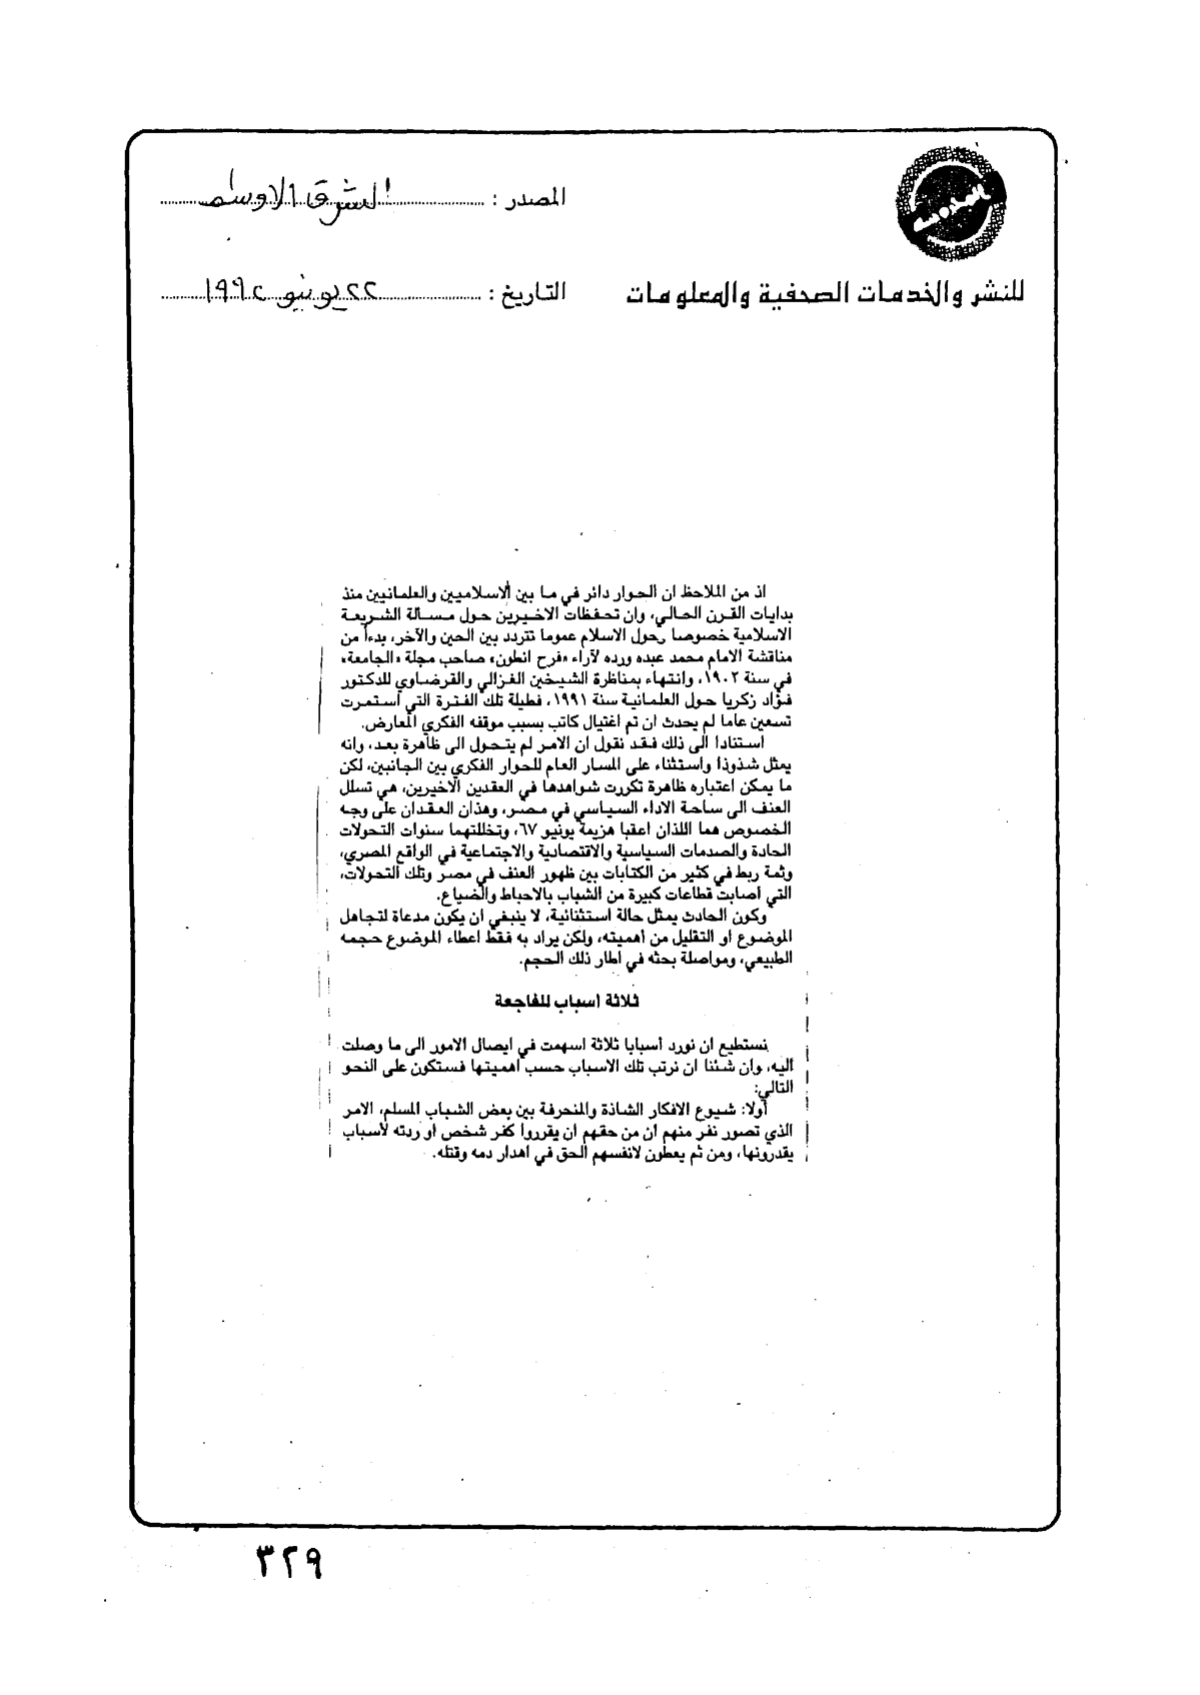 المصدر : الشرق الاوسط
للنشر والخدمات الصحفية والمعلومات
التاريخ : ٢٢ يونيو ١٩٩٢
اذ من الملاحظ ان الحوار دائر في ما بين الاسلاميين والعلمانيين منذ
بدايات القرن الحالي، وان تحفظات الاخيرين حول مسالة الشريعة
الاسلامية خصوصا وحول الاسلام عموما تتردد بين الحين والآخر، بدءاً من
مناقشة الامام محمد عبده ورده لآراء «فرح انطون» صاحب مجلة «الجامعة»
في سنة ١٩٠٢، وانتهاء بمناظرة الشيخين الغزالي والقرضاوي للدكتور
فؤاد زكريا حول العلمانية سنة ١٩٩١، فطيلة تلك الفترة التي استمرت
تسعين عاما لم يحدث ان تم اغتيال كاتب بسبب موقفه الفكري المعارض.
استنادا الى ذلك فقد نقول ان الامر لم يتحول الى ظاهرة بعد، وانه
يمثل شذوذا واستثناء على المسار العام للحوار الفكري بين الجانبين، لكن
ما يمكن اعتباره ظاهرة تكررت شواهدها في العقدين الاخيرين، هي تسلل
العنف الى ساحة الاداء السياسي في مصر، وهذان العقدان على وجه
الخصوص هما اللذان اعقبا هزيمة يونيو ٦٧، وتخللتهما سنوات التحولات
الحادة والصدمات السياسية والاقتصادية والاجتماعية في الواقع المصري،
وثمة ربط في كثير من الكتابات بين ظهور العنف في مصر وتلك التحولات،
التي اصابت قطاعات كبيرة من الشباب بالاحباط والضياع.
وكون الحادث يمثل حالة استثنائية، لا ينبغي ان يكون مدعاة لتجاهل
الموضوع او التقليل من اهميته، ولكن يراد به فقط اعطاء الموضوع حجمه
الطبيعي، ومواصلة بحثه في اطار ذلك الحجم.
ثلاثة اسباب للفاجعة
نستطيع ان نورد اسبابا ثلاثة اسهمت في ايصال الامور الى ما وصلت
اليه، وان شئنا ان نرتب تلك الاسباب حسب اهميتها فستكون على النحو
التالي:
أولا: شيوع الافكار الشاذة والمنحرفة بين بعض الشباب المسلم، الامر
الذي تصور نفر منهم ان من حقهم ان يقرروا كفر شخص او ردته لاسباب
يقدرونها، ومن ثم يعطون لانفسهم الحق في اهدار دمه وقتله.
٣٢٩